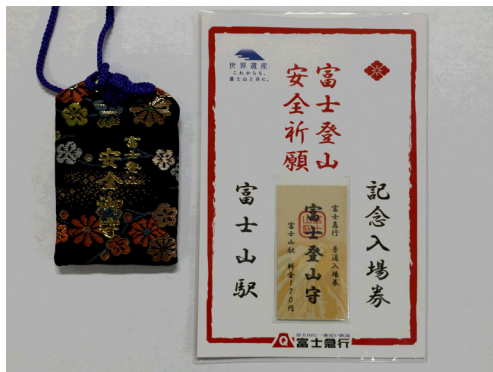 富士登山
安全御守
世界遺産
これからも、
富士山と共に。
富士登山
安全祈願
記念入場券
富士山駅
富士急行 普通入場券
富士登山守
富士山駅 料金170円
富士山に一番近い鉄道
富士急行